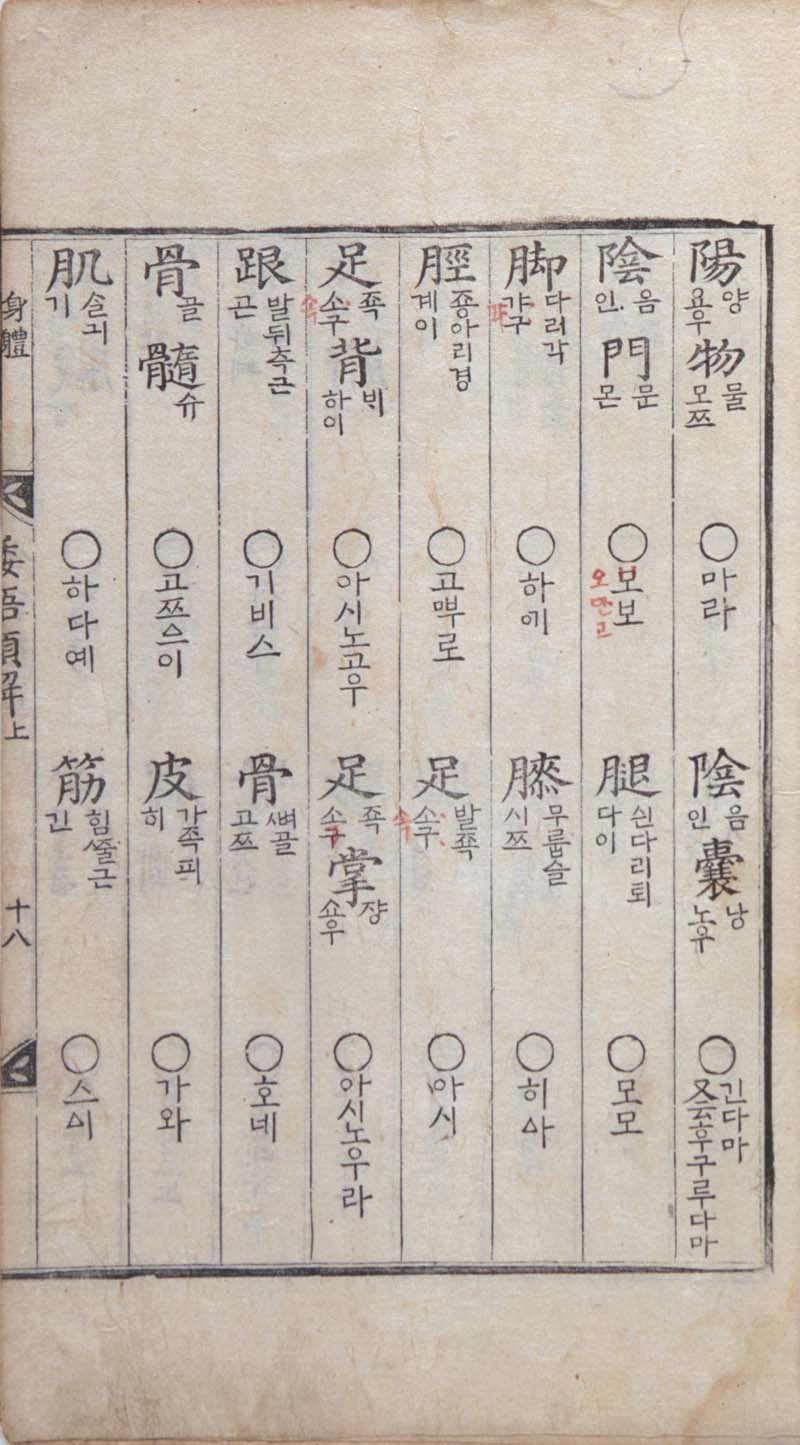 陽 양 요우 物 물 모쯔 ○마라 陰 음 인 囊 낭 노우 ○긴다마 又云후구루다마
陰 음 인 門 문 몬 ○보보 오만고 腿 신다리퇴 다이 ○모모
脚 다리각 갸구 膝 무룹슬 시쯔 ○히ᅀᅡ
脛 죵아리경 계이 足 발죡 소구 ○아시
足 죡 소구 背 ᄇᆡ 하이 ○아시노고우 足 죡 소구 掌 쟝 쇼우 ○아시노우라
跟 발뒤측근 곤 ○기비스 骨 ᄲᅧ골 고쯔 ○호네
骨 골 髓 슈 ○고쯔으이 皮 가족피 히 ○가와
肌 ᄉᆞᆯ긔 기 ○하다예 筋 힘ᄶᅮᆯ근 긴 ○스ᅀᅵ
身體 倭語類解上 十八